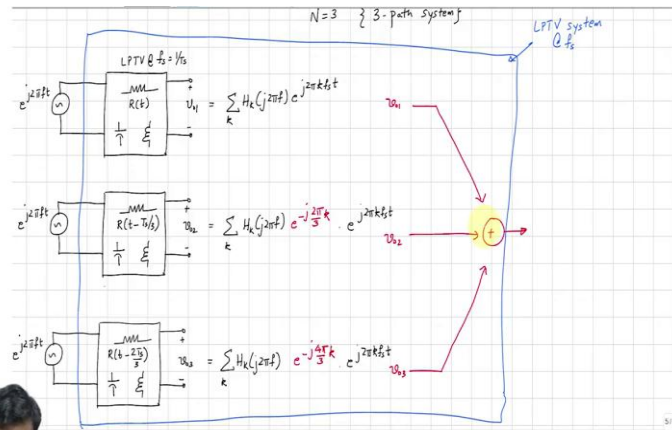 N=3 {3-path system}
LPTV system
@ fs
LPTV @ fs = 1/Ts
e^{j2πft}
R(t)
+
v_{01} = Σ_k H_k(j2πf) e^{j2πkf_st}
-
v_{01}
e^{j2πft}
R(t-Ts/3)
+
v_{02} = Σ_k H_k(j2πf) e^{-j2π/3 k} . e^{j2πkf_st}
-
v_{02}
+
e^{j2πft}
R(t-2Ts/3)
+
v_{03} = Σ_k H_k(j2πf) e^{-j4π/3 k} . e^{j2πkf_st}
-
v_{03}